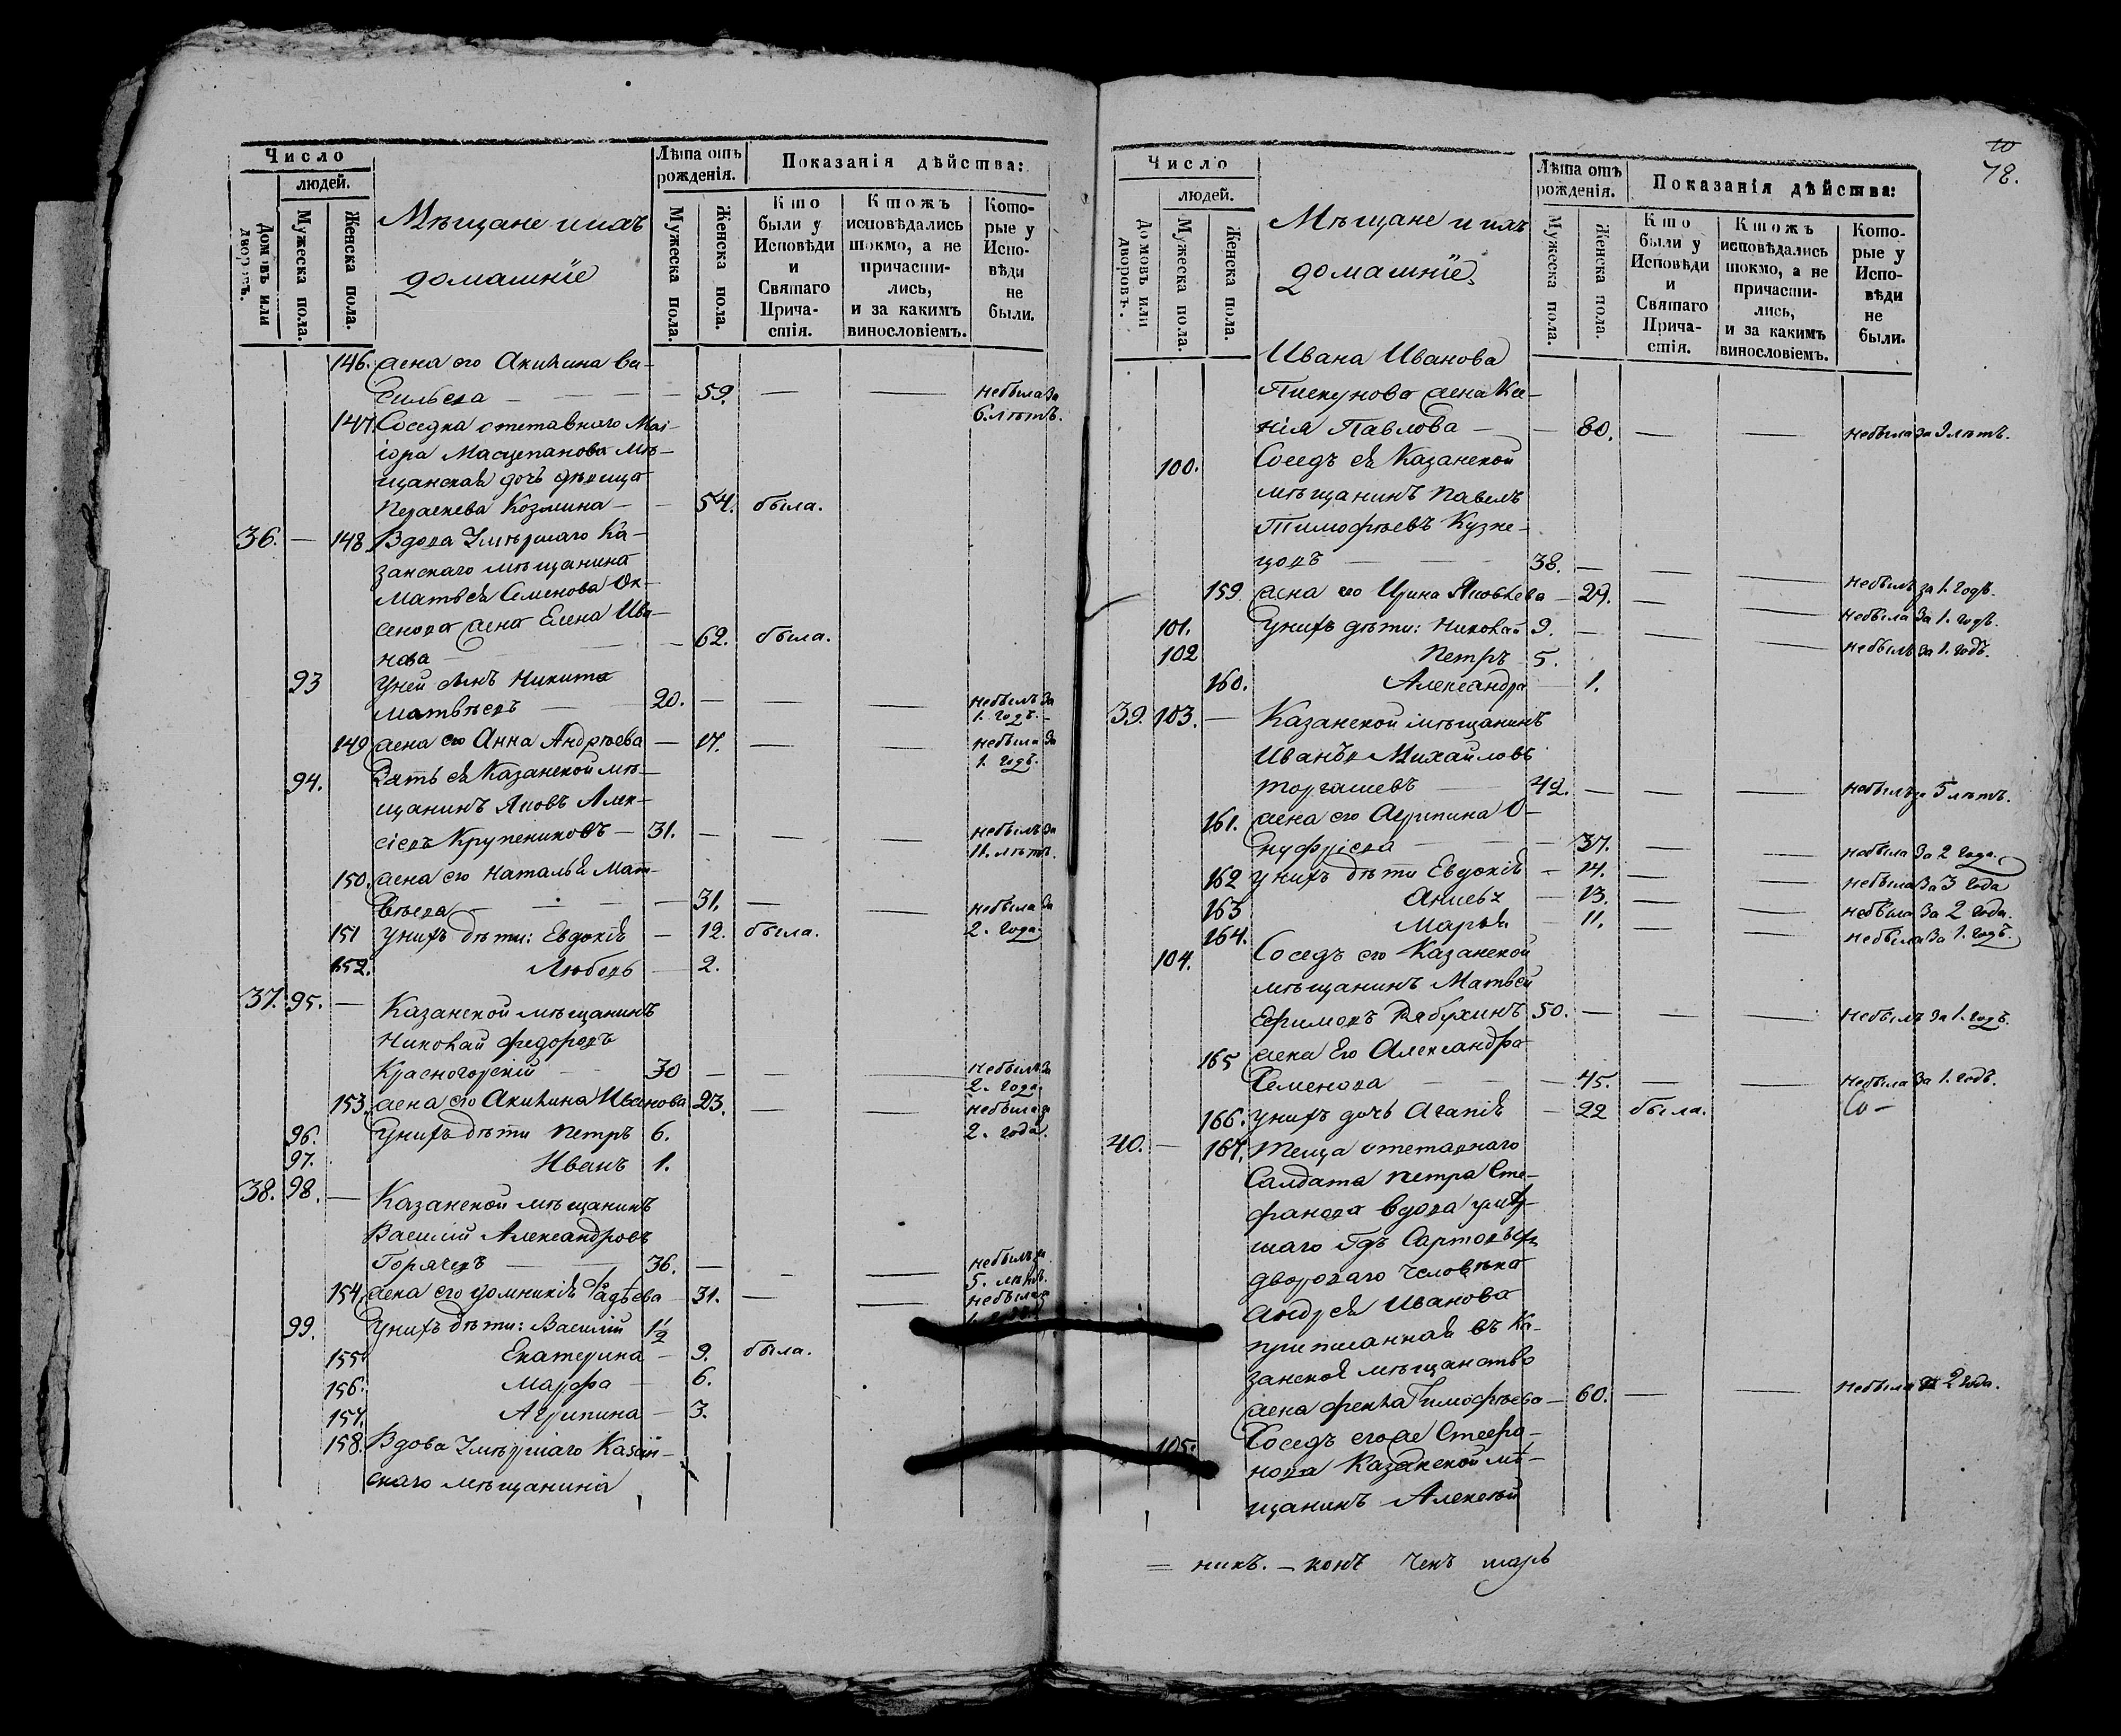 Число
людей.
Домовъ или дворовъ.
Мужеска пола.
Женска пола.
Мѣщане и ихъ
домашнїе
Лѣта отъ
рожденія.
Мужеска пола.
Женска пола.
Показанія дѣйства:
Кто
были у
Исповѣди
и
Святаго
Прича-
стія.
Ктожъ
исповѣдались
токмо, а не
причасти-
лись,
и за какимъ
винословіемъ.
Кото-
рые у
Испо-
вѣди
не
были.
146. жена его Акилина Ва-
сильева — 59. — — небыла за
6. лѣтъ.
147. Соседка отставнаго Маі-
іора Масцепанова мѣ-
щанская дочь дѣвица
Параскева Козмина — — 54. была.
36. — 148. Вдова Умѣршаго Ка-
занскаго мѣщанина
Матвѣя Семенова
жена Елена Ива-
нова — 62. была.
93 Уней сынъ Никита
Матвѣевъ — 20. — — — небылъ за
1. годъ.
149 жена его Анна Андрѣева — 17. — — небыла за
1. годъ.
94. Зять ея Казанской мѣ-
щанинъ Яковъ Алек-
сіевъ Крупениковъ — 31. — — — небылъ за
11. лѣтъ.
150. жена его Наталья Мат-
вѣева — — 31. — — небыла за
2. года.
151 Унихъ дѣти: Евдокія — 12. была.
152. Любовь — 2.
37. 95. — Казанской мѣщанинъ
Николай Федоровъ
Красногорскій — 30 — — — небылъ за
2. года.
153. жена его Акилина Иванова 23. — — небыла за
2. года.
96. Унихъ дѣти Петръ 6.
97. Иванъ 1.
38. 98. — Казанской мѣщанинъ
Василій Александровъ
Горячевъ — 36. — — — небылъ за
5. лѣтъ.
154. жена его Домникія Фадѣева 31. — — небыла за
99. Унихъ дѣти: Василій 1½
155. Екатерина — 9. была.
156. Марфа — 6.
157. Агрипина — 3.
158. Вдова Умѣршаго Казан-
скаго мѣщанина
78.
Число
людей.
Домовъ или дворовъ.
Мужеска пола.
Женска пола.
Мѣщане и ихъ
домашнїе
Лѣта отъ
рожденія.
Мужеска пола.
Женска пола.
Показанія дѣйства:
Кто
были у
Исповѣди
и
Святаго
Прича-
стія.
Ктожъ
исповѣдались
токмо, а не
причасти-
лись,
и за какимъ
винословіемъ.
Кото-
рые у
Испо-
вѣди
не
были.
Ивана Иванова
Пискунова жена Ксе-
нія Павлова — — 80. — — небыла за 9 лѣтъ.
100. Соседъ ея Казанской
мѣщанинъ Павелъ
Тимофѣевъ Кузне-
цовъ — 38. — — — небылъ за 1. годъ.
159. жена его Ирина Яковлева — 29. — — небыла за 1. годъ.
101. Унихъ дѣти: Николай 9. — — — небылъ за 1. годъ.
102 Петръ 5.
160. Александра — 1.
39. 103. — Казанской мѣщанинъ
Иванъ Михайловъ
Торгашевъ — 42. — — — небылъ за 5 лѣтъ.
161. жена его Агрипина О-
нуфріева — — 37. — — небыла за 2 года.
162 унихъ дѣти Евдокія — 14. — — небыла за 3 года
163 — 13. — — небыла за 2 года.
164. Марья — 11. — — небыла за 1. годъ.
104. Соседъ его Казанской
мѣщанинъ Матвей
Ефимовъ Рябухинъ 50. — — — небылъ за 1. годъ.
165 жена Его Александра
Семенова — — 45. — — небыла за 1. годъ.
166. унихъ дочь Агапія — 22 была.
40. — 167. Теща отставнаго
Салдата Петра Сте-
фанова вдова умѣр-
шаго
двороваго человѣка
Андрея Иванова
приписанная въ Ка-
занское мѣщанство
жена Фекла Тимофѣева — 60. — — небыла за 2 года.
105. Соседъ егоже Стефа-
нова Казанской мѣ-
щанинъ Алексѣй